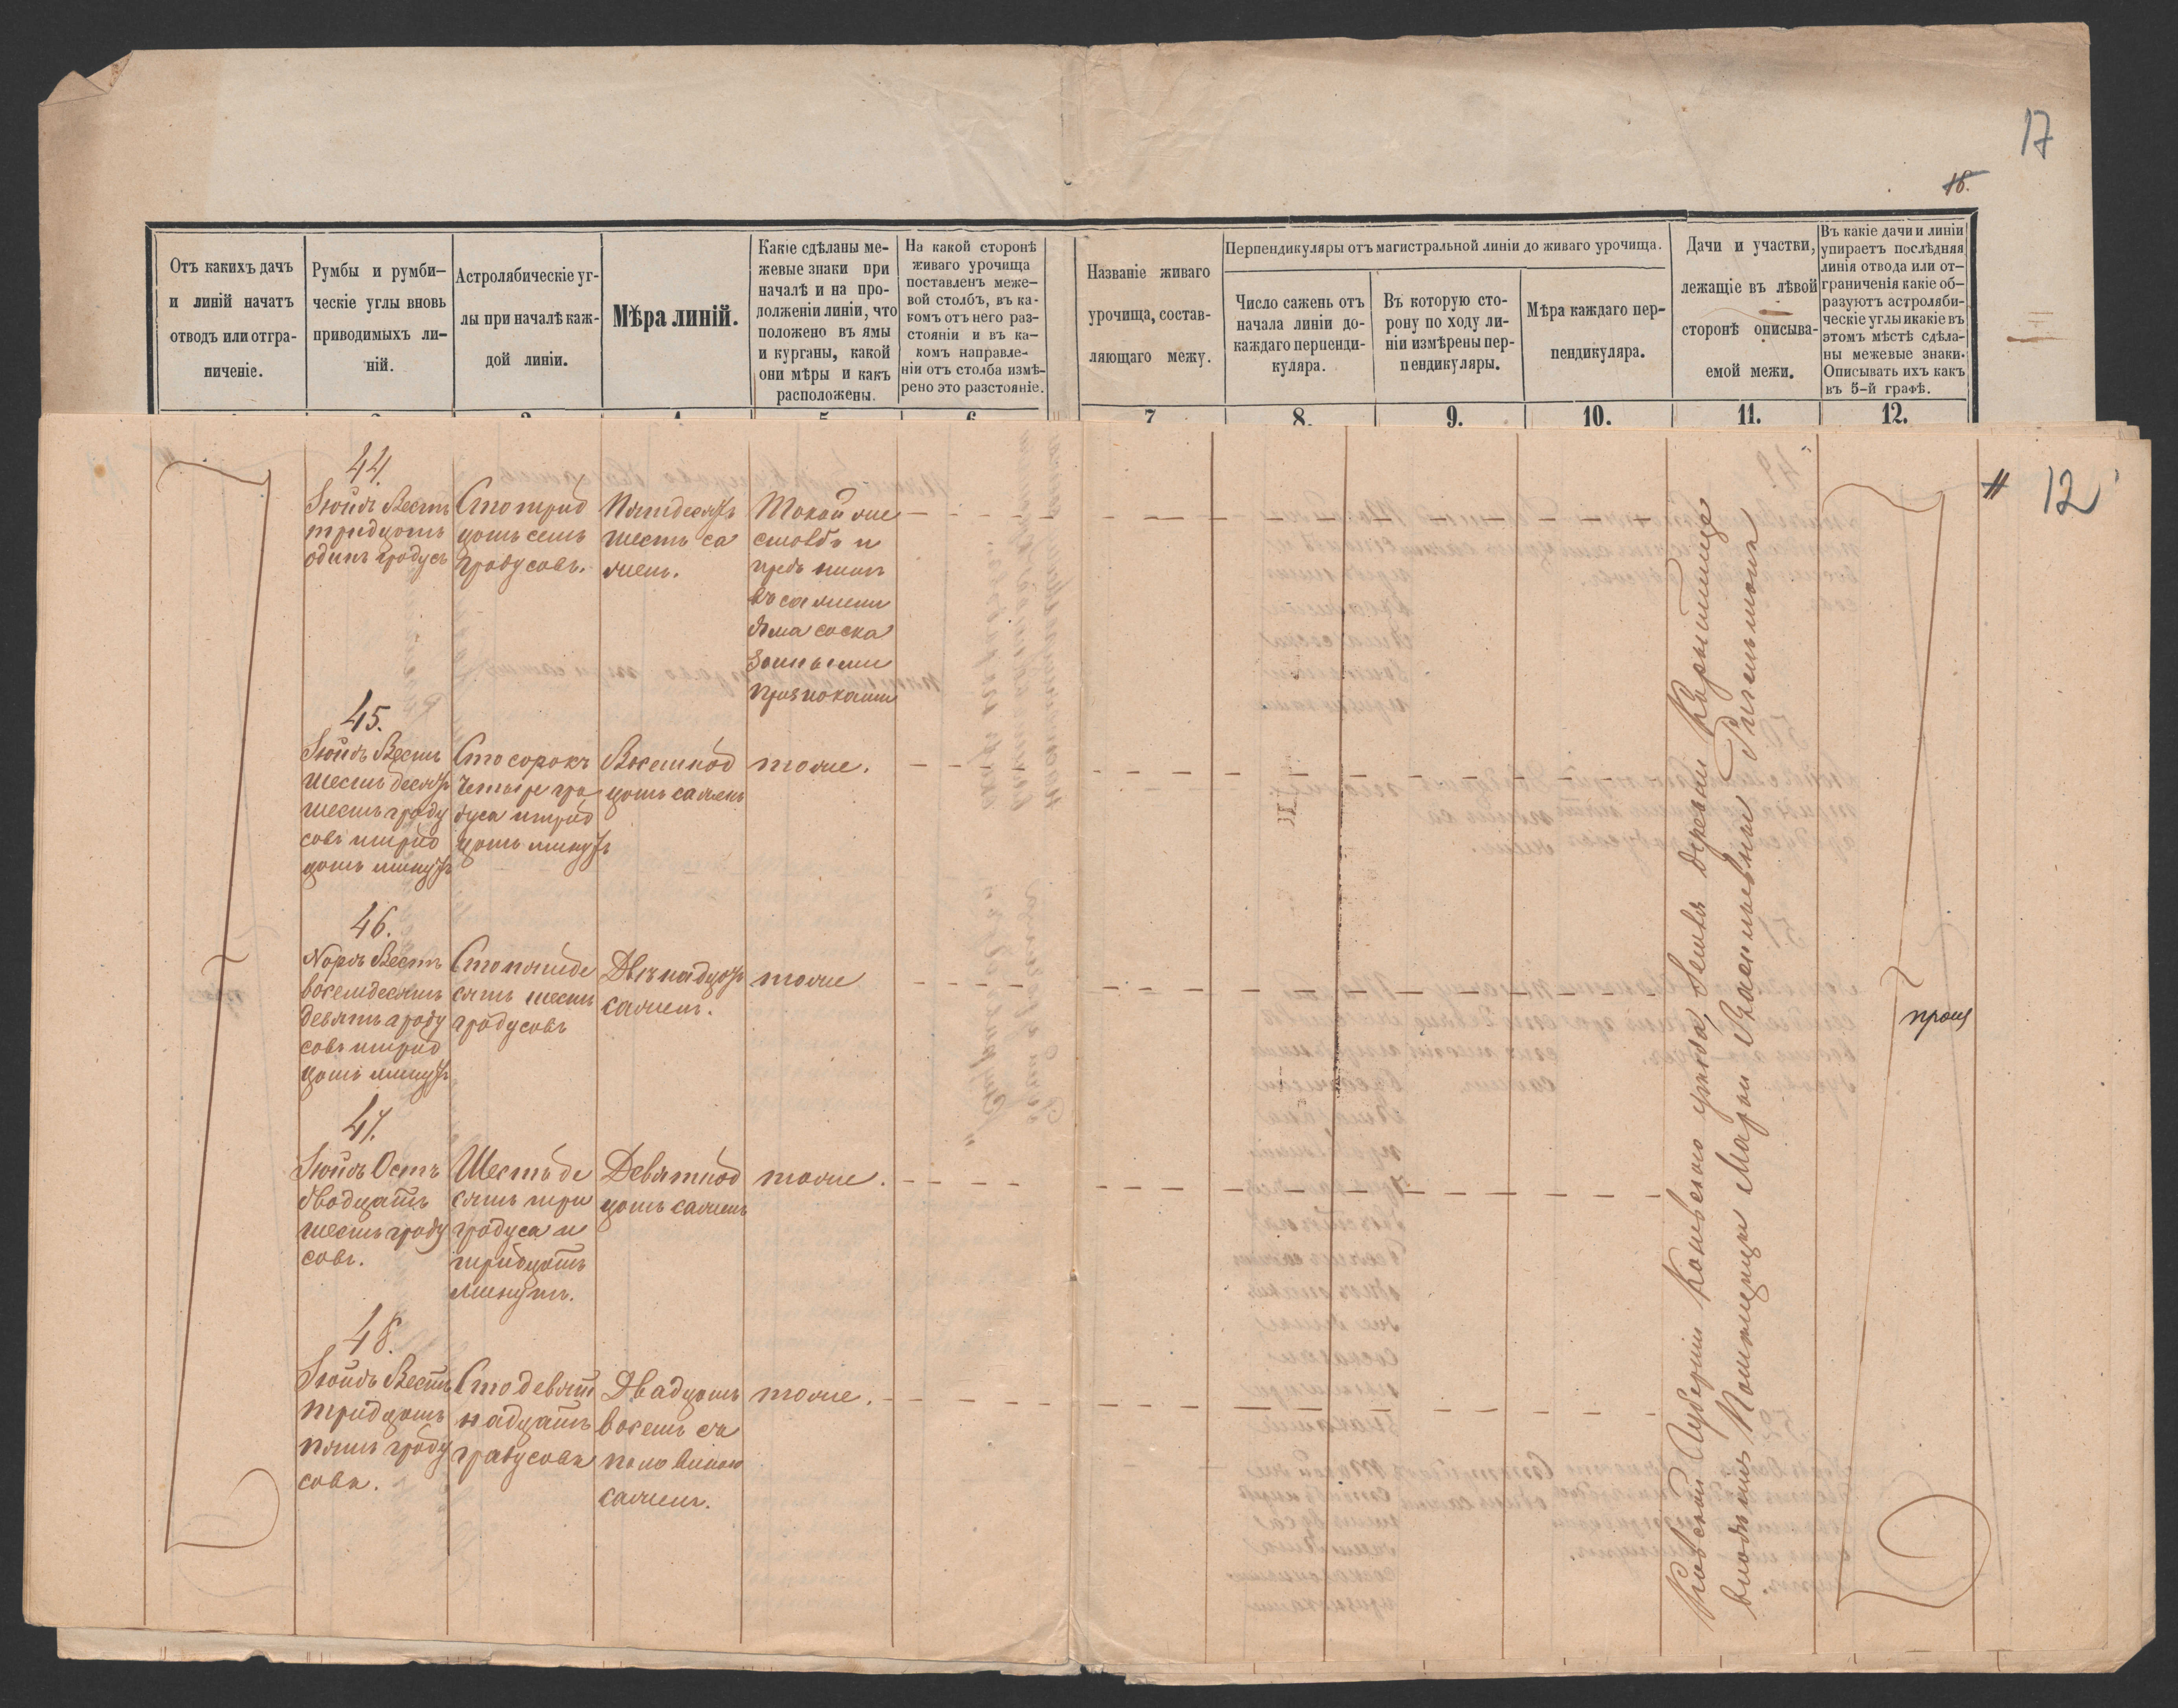 17
18.
Отъ какихъ дачъ
и линій начатъ
отводъ или отгра-
ниченіе.
Румбы и румби-
ческіе углы вновь
приводимыхъ ли-
ній.
Астролябическіе уг-
лы при началѣ каж-
дой линіи.
Мѣра линій.
Какіе сдѣланы ме-
жевые знаки при
началѣ и на про-
долженіи линіи, что
положено въ ямы
и курганы, какой
они мѣры и какъ
расположены.
На какой сторонѣ
живаго урочища
поставленъ меже-
вой столбъ, въ ка-
комъ отъ него раз-
стояніи и въ ка-
комъ направле-
ніи отъ столба измѣ-
рено это разстояніе.
Названіе живаго
урочища, состав-
ляющаго межу.
Перпендикуляры отъ магистральной линіи до живаго урочища.
Число сажень отъ
начала линіи до-
каждаго перпенди-
куляра.
Въ которую сто-
рону по ходу ли-
ніи измѣрены пер-
пендикуляры.
Мѣра каждаго пер-
пендикуляра.
Дачи и участки,
лежащіе въ лѣвой
сторонѣ описыва-
емой межи.
Въ какіе дачи и линіи
упираетъ послѣдняя
линія отвода или от-
граниченія какіе об-
разуютъ астроляби-
ческіе углы и какіе въ
этомъ мѣстѣ сдѣла-
ны межевые знаки.
Описывать ихъ какъ
въ 5-й графѣ.
7
8.
9.
10.
11.
12.
11
12
44.
Зюйдъ Вестъ
тридцать
одинъ градусъ
Сто трид
цать семь
градусовъ.
Пятдесятъ
шесть са
жень.
Такой же
столбъ и
предъ нимъ
въ сажени
яма со ска
занными
признаками
45.
Зюйдъ Вестъ
шестьдесятъ
шесть граду
совъ и трид
цать минутъ
Сто сорокъ
четыре гра
дуса и трид
цать минутъ
Восемнад
цать сажень
тоже.
46.
Нордъ Вестъ
восемдесятъ
девять граду
совъ и трид
цать минутъ
Сто пятьде
сятъ шесть
градусовъ
Двѣнадцать
сажень.
тоже
47.
Зюйдъ Остъ
двадцать
шесть граду
совъ.
Шестьде
сятъ три
градуса и
тридцать
минутъ.
Девятнад
цать сажень
тоже.
48.
Зюйдъ Вестъ
тридцать
пять граду
совъ.
Сто девят
надцать
градусовъ
Двадцать
восемь съ
половиною
сажень.
тоже.
Кіевской Губерніи Каневскаго уѣзда, Земля деревни Карытище
владѣнія Помѣщицы Маріи Васильевны Ригельманъ